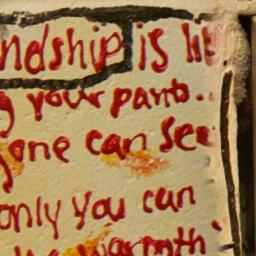 ndship is li
g your pants..
yone can see
only you can
warmth